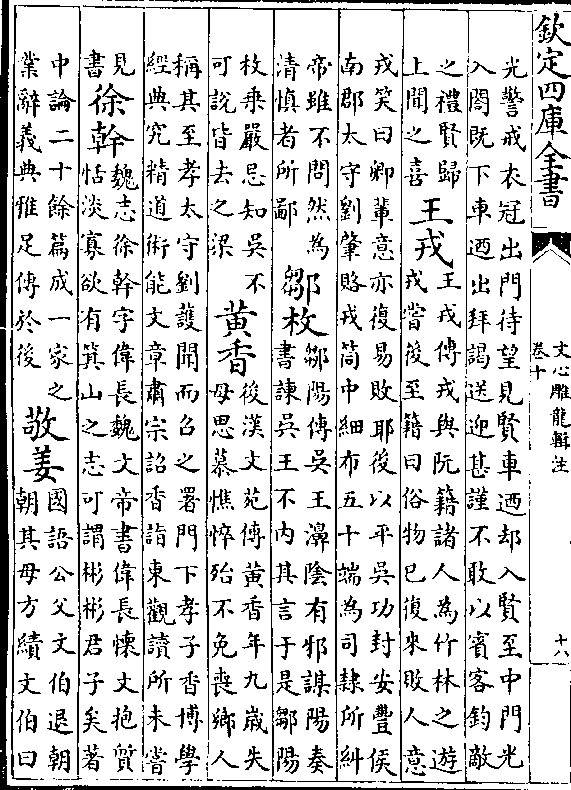 欽定四庫全書
文心雕龍輯注
卷十
十八
光警戒衣冠出門待望見賢車迺却入賢至中門光
入閤既下車迺出拜謁送迎甚謹不敢以賓客鈞敵
之禮賢歸
上聞之喜
王戎
王戎傳戎與阮籍諸人為竹林之遊
戎嘗後至籍曰俗物已復來敗人意
戎笑曰卿輩意亦復易敗耶後以平吳功封安豐侯
南郡太守劉肇賂戎筒中細布五十端為司隸所糾
帝雖不問然為
清慎者所鄙
鄒枚
鄒陽傳吳王濞陰有邪謀陽奏
書諫吳王不內其言于是鄒陽
枚乗嚴忌知吳不
可說皆去之梁
黄香
後漢文苑傳黄香年九歲失
母思慕憔悴殆不免喪鄉人
稱其至孝太守劉護聞而召之署門下孝子香博學
經典究精道術能文章肅宗詔香詣東觀讀所未嘗
見
書
徐幹
魏志徐幹字偉長魏文帝書偉長懷文抱質
恬淡寡欲有箕山之志可謂彬彬君子矣著
中論二十餘篇成一家之
業辭義典雅足傳於後
敬姜
國語公父文伯退朝
朝其母方績文伯曰